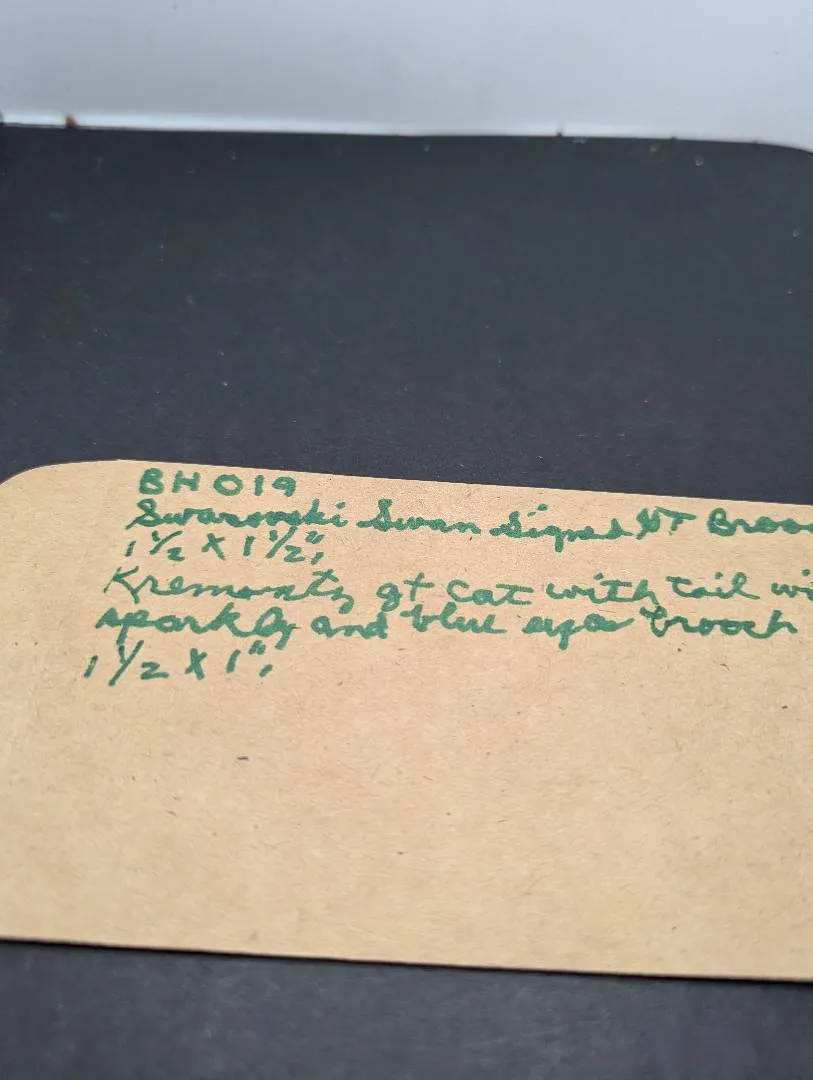 BH019
Swarovski Swan Signed GT Broo
1 1/2 X 1 1/2",
Krementz gt cat with tail wi
sparkly and blue eyes brooch
1 1/2 X 1",